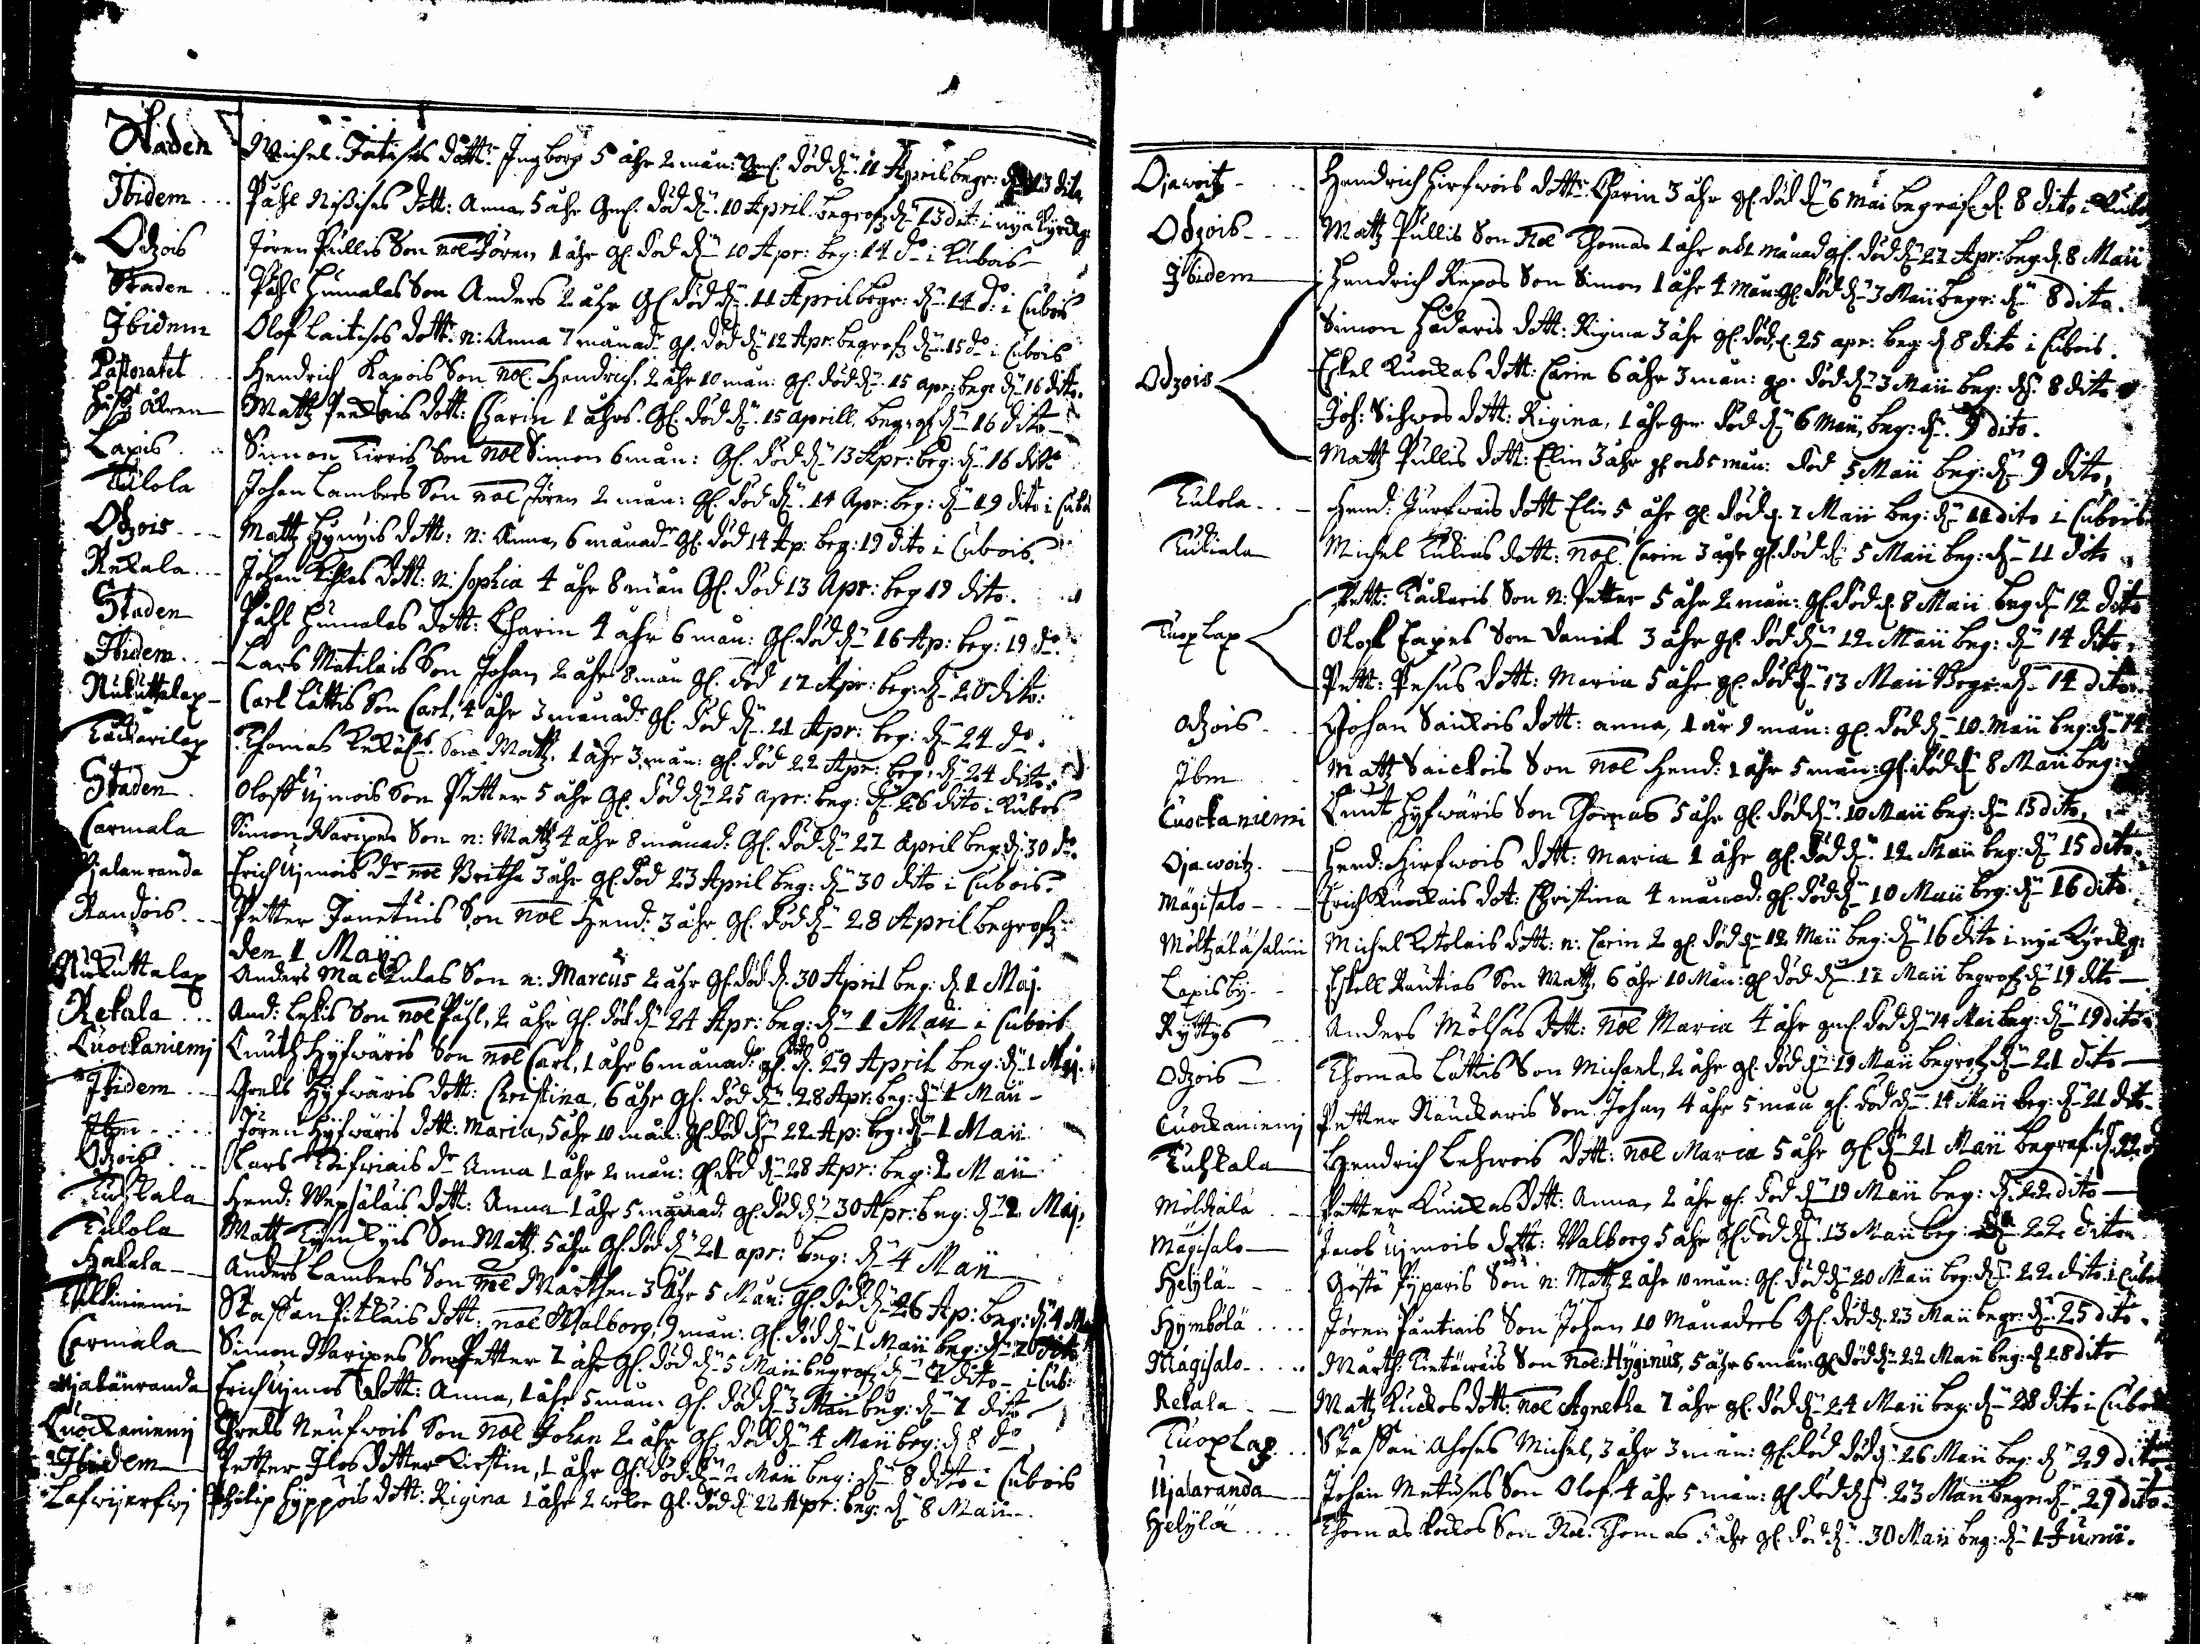 Staden Michel Tatises dott: Ingborg 5 åhr 2 mån: Gml. död dn. 11 April begr: dn 13 dito
Ibidem Påhl Nissises dott: Anna, 5 åhr Gml. död dn. 10 April. begrafz dn 13 dit: i nya Kyrckg:
Odzois Jören Pullis Son nol Jören 1 åhr gl. död dn 10 Apr: beg: 14 do i Cubois
Staden Påhl Humalas Son Anders 2 åhr Gl. död dn. 11 April begr: dn. 14 do: i Cubois
Ibidem Olof Laitises dott: n: Anna 7 månad. gl. död dn 12 Apr: begrafz dn. 15 do i Cubois
Pastoratet Hendrich Kapois Son nol Hendrich. 2 åhr 10 mån: gl. död dn. 15 apr: begr dn 16 dito.
Matz dott: Charin 1 åhrs. Gl. död dn. 15 Aprill, begrafz dn 16 dito
Lapis Simon Kirris Son nol Simon 6 mån: Gl. död dn 13 Apr: beg: dn 16 dito
Tulola Johan Lambers Son nol Jören 2 mån: gl. död dn. 14 Apr: beg: dn 19 dito i Cubois
Odzois Matz Hynnis dott: n: Anna, 6 månad gl. död 14 Ap: beg: 19 dito i Cubois.
Rekala Johan dott: n: Sophia 4 åhr 8 mån Gl. död 13 Apr: beg 19 dito.
Staden Påhl Humalas dott: Charin 4 åhr 6 mån: Gl. död dn 16 Ap: beg: 19 do.
Ibidem Lars Matilais Son Johan, 2 åhr 8 mån gl. död 17 Apr: beg: dn 20 dito:
Nukuttalax Carl Lättis Son Carl, 4 åhr 3 månad gl. död dn. 21 Apr: beg: dn 24 do.
Käckärilax Thomas Son Matz. 1 åhr 3 mån: gl. död 22 Apr: beg: dn 24 dito.
Staden Oloff Ujmois Son Petter 5 åhr Gl. död dn 25 apr: beg: dn 26 dito i Kubois
Carmala Simon Waripes Son n: Matz 4 åhr 8 månad: Gl. död dn 27 April beg dn: 30 do.
Ujalanranda Erich Ujmois dr nol Britha 3 åhr gl. död 23 April beg: dn 30 dito i Cubois.
Randois Petter Janetuis Son nol Hend: 3 åhr gl. död dn 28 April begrafz
den 1 Maij
Nukuttalax Anders Mackulas Son n: Marcus 2 åhr gl. död d. 30 April beg: d. 1 Maj.
Rekala And: Leskis Son nol Påhl, 2 åhr gl. död dn 24 Apr: beg: dn 1 Maii i Cubois
Cuockaniemj Cnutz Hyfwäris Son nol Carl, 1 åhr 6 månad: gl. död d. 29 April beg: dn 1 Maj.
Ibidem Grels Hyfwäris dott: Christina, 6 åhr gl. död dn 28 Apr: beg: dn 1 Maii
Ibm Jören Hyfwäris dott: Maria, 5 åhr 10 mån: gl. död dn 22 Ap: beg: dn 1 Maii
Odzois Lars dr Anna 1 åhr 2 mån: gl. död dn 28 Apr: beg: 2 Maii
Tuhkala Hend: Wepsäläis dott: Anna 1 åhr 5 månad: gl. död dn 30 Apr: beg: dn 2 Maj.
Tulola Matz Son Matz. 5 åhr gl. död dn 21 apr: beg: dn 4 Maii
Hakala Anders Lambers Son nol Mårthen 3 åhr 5 mån: Gl. död dn 26 Ap: beg: dn 4 Maii
Staffan Pitkäis dott: nol Walborg, 9 mån: Gl. död dn 1 Maii beg: dn 7 dito
Carmala Simon Waripes Son Petter 7 åhr gl. död dn 5 Maii begrafz dn 7 dito i Cub:
Ujalänranda Erich Ujmos dott: Anna, 1 åhr 5 mån. gl. död dn 3 Maii beg: dn 7 dito
Cuockaniemj Grels Neufwois Son nol Johan 2 åhr gl. död dn 4 Maii beg: d 8 do
Ibidem Petter Ilos dotter Kirstin, 1 åhr gl. död dn 2 Maii beg: dn 8 dito i Cubois
Lafwijerfwj Philip Hyppöis dott: Rigina 1 åhr 2 wekor gl. död d. 22 Apr: beg: dn 8 Maii
Ojawoitz Hendrich Hirfwois dottr Charin 3 åhr gl. död dn 6 Maii begrafz d. 8 dito i Cubois
Odzois Matz Pullis Son nol Thomas 1 åhr och 1 månad gl. död dn 27 Apr: beg. d. 8 Maii
Ibidem Hendrich Repos Son Simon 1 åhr 4 mån: gl. död dn 3 Maii begr: dn 8 dito.
Simon Hadaris dott: Rigina 3 åhr gl. död d. 25 apr: beg: d 8 dito i Cubois.
Odzois Eskel Kuocklas dott: Carin 6 åhr 3 mån: gl. död dn 3 Maii beg: dn. 8 dito
Joh: Sihwos dott: Rigina, 1 åhr gm. död dn 6 Maii, beg: dn. 9 dito.
Matz Pullis dott: Elin 3 åhr gl och 5 mån: död 5 Maii beg: dn 9 dito,
Tulola Hend: Hurfwais dott Elin 5 åhr gl. död d. 7 Maii beg: dn 11 dito i Cubois
Kukiala Michel Kukias dott: nol. Carin 3 åhr gl. död dn 5 Maii beg: dn 11 dito
Pett: Käckäris Son n: Petter 5 åhr 2 mån: gl. död d. 8 Maii beg dn 12 dito
Cuoxlax Oloff Son Daniel 3 åhr gl. död dn 12 Maii beg: dn 14 dito,
Pett: Pesus dott: Maria 5 åhr gl. död dn 13 Maii Begr: dn 14 dito.
Odzois Johan Saickois dott: anna, 1 år 9 mån: gl. död dn 10 Maii beg: dn 14
Ibm Matz Saickois Son nol Hend: 1 åhr 5 mån: gl. död dn 8 Maii beg:
Cuockaniemi Cnut Hyfwäris Son Thomas 5 åhr gl. död dn. 10 Maii beg: dn 15 dito,
Ojawoitz Hend: Hirfwois dott: Maria 1 åhr gl. död dn. 12 Maii beg: dn 15 dito.
Mägisalo Erich Kuocklais dot: Christina 4 månad: gl. död dn 10 Maii beg: dn 16 dito.
Möltzäläsalmi Michel Kotolais dott: n: Carin 2 gl. död dn 12 Maii beg: dn 16 dito i nya Kyrckg:
Lapisby Eskell Rautias Son Matz, 6 åhr 10 Mån: gl. död dn 17 Maii begrafz dn 19 dito
Ryttys Anders Mölsäs dott: nol Maria 4 åhr gml. död dn 14 Mai beg: dn 19 dito
Odzois Thomas Lättis Son Michael, 2 åhr gl. död dn 19 Maii begrafz dn 21 dito
Cuockaniemj Petter Naukaris Son Johan 4 åhr 5 mån gl. död dn. 14 Maii beg: dn 21 dito
Tuhkala Hendrich Lehwois dott: nol Maria 5 åhr gl. dn 21 Maii begrafz d 22
Möldtälä Petter Kuickas dott: Anna, 2 åhr gl. död dn 19 Maii beg: d. 22 dito
Mägisalo Jacob Ujmois dott: Walborg 5 åhr gl. död dn. 13 Maii beg: dn 22 dito
Helylä Göstä Pyparis Son n: Matz 2 åhr 10 mån: gl. död dn 20 Maii beg: dn. 22 dito i Cubois
Hymbölä Jören Pantiais Son Johan 10 Månaders gl. död d. 23 Maii begr: dn. 25 dito.
Mägisalo Mårth: Kietäwäis Son nol: Hyginus, 5 åhr 6 mån: gl. död dn 22 Maii beg: d 28 dito
Rekala Matz Kuckos dott: nol Agnetha 7 åhr gl. död dn 24 Maii beg: dn 28 dito i Cubois
Cuoxlax Staffan Ahoses Michel, 3 åhr 3 mån: gl. död död d 26 Maii beg: dn 29 dito
Ujalaranda Johan Metuses Son Olof, 4 åhr 5 mån: gl. död dn. 23 Maii begr: dn 29 dito
Helylä Thomas Kockos Son nol: Thomas 5 åhr gl. död dn. 30 Maii beg: dn 1 Junii.